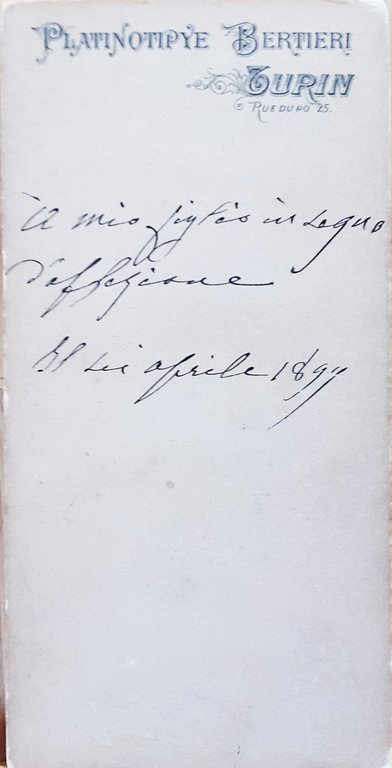 PLATINOTIPYE BERTIERI
TURIN
RUE DU PO 25.
A mio figlio in segno
d'affezione
Il sei aprile 1897